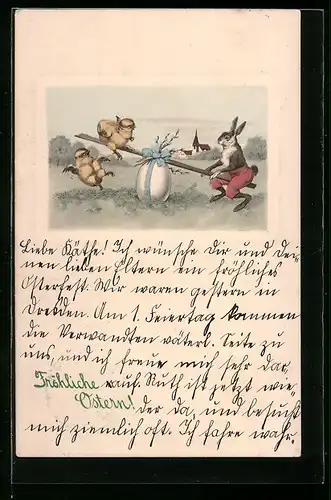 Liebe Käthe! Ich wünsche Dir und Dei-
nen lieben Eltern ein fröhliches
Osterfest. Wir waren gestern in
Dresden. Am 1. Feiertag kommen
die Verwandten väterl. Seite zu
uns, und ich freue mich sehr dar
Fröhliche auf. Ruth ist jetzt wie-
Ostern! der da, und besucht
mich ziemlich oft. Ich fahre wahr-